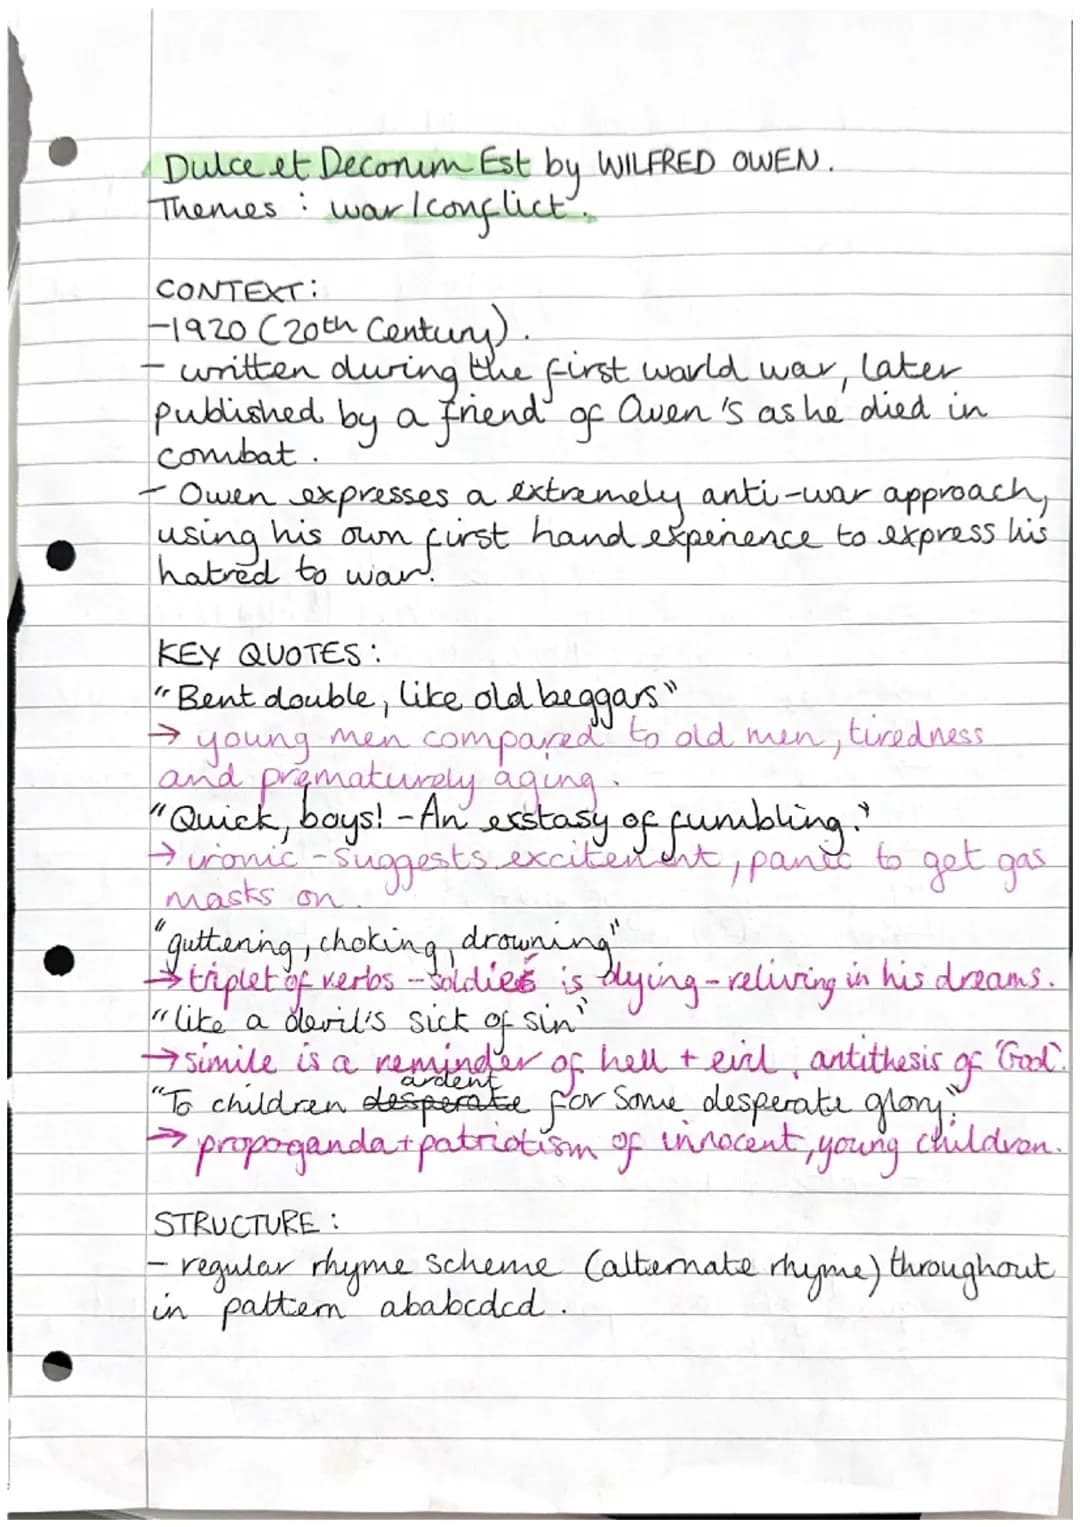 Dulce et Deconum Est by WILFRED OWEN.
Themes : war/conflict.
CONTEXT:
-1920 (20th Century).
- written during the first world war, later
published by a friend of Owen's as he died in
combat.
- Owen expresses a extremely anti-war approach,
using his own first hand experience to express his
hatred to war.
KEY QUOTES:
"Bent double, like old beggars"
→ young men compared to old men, tiredness
and prematurely aging.
"Quick, boys! - An esstasy of fumbling."
→ ironic - suggests excitement, panic to get gas
masks on.
"guttering, choking, drowning"
→ triplet of verbs - soldier is dying - reliving in his dreams.
"like a devil's sick of sin"
→ simile is a reminder of hell + evil, antithesis of 'God'.
ardent
"To children desperate for some desperate glory."
→ propoganda + patriotism of innocent, young children.
STRUCTURE:
- regular rhyme scheme (alternate rhyme) throughout
in pattern ababcdcd.